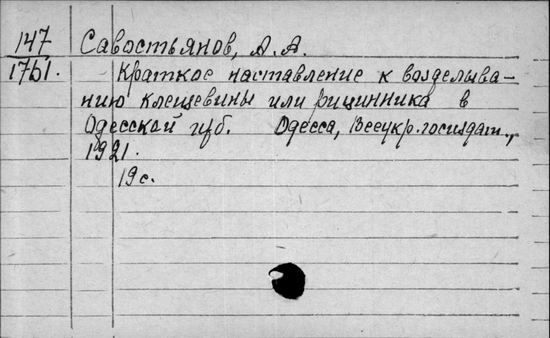 147
1761.
Савостьянов, А. А.
Краткое наставление к возделыва-
нию клещевины или рицинника в
Одесской губ. Одесса, Всеукр. госиздат.,
1921.
19 с.